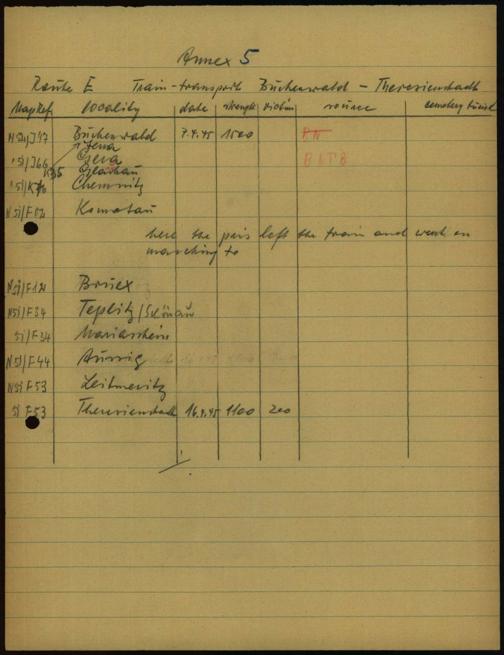 Annex 5
Route E Train-transport Buchenwald - Theresienstadt
MapRef Locality date strength victim source cemetery burial
N51/J47 Buchenwald 7.4.45 1500
Jena
51/J66 Gera
K35 Glachau
51/K Chemnitz
N51/F12 Komotau
here the pris left the train and went on
marching to
N51/F12 Bruex
N51/F34 Teplitz/Schönau
51/F34 Mariaschein
N51/F44 Aussig
N51 F53 Leitmeritz
51 F53 Theresienstadt 16.4.45 1100 200